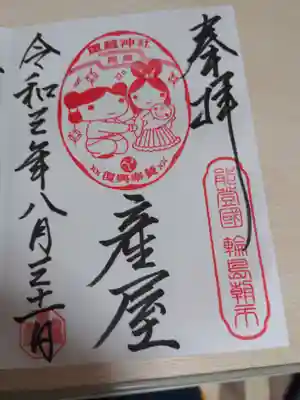 奉拝
能登國 輪島朝市
重蔵神社
復興奉賛
産屋
令和五年八月三十一日